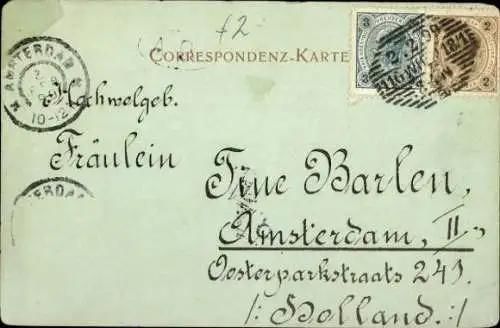 f2
CORRESPONDENZ-KARTE
AMSTERDAM
10-12
Hochwolgeb.
Fräulein Tine Barlen,
Amsterdam, II
Oosterparkstraats 241.
/: Holland :/